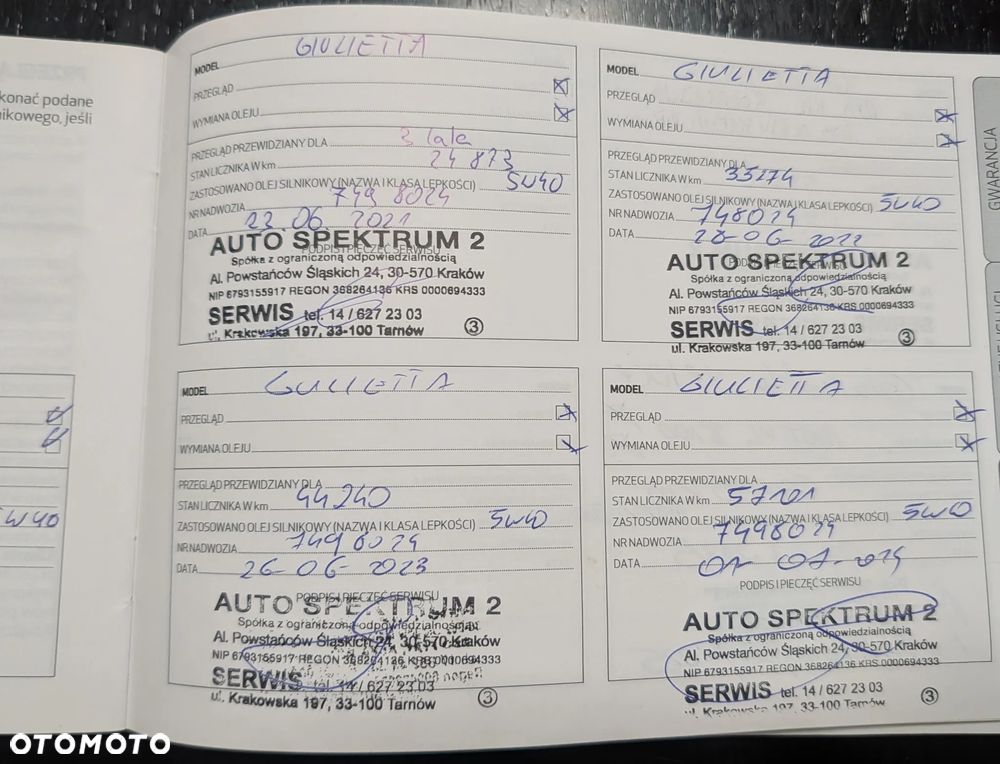 konać podane
nikowego, jeśli
5W40
MODEL GIULIETTA
PRZEGLĄD
WYMIANA OLEJU
PRZEGLĄD PRZEWIDZIANY DLA 3 lata
STAN LICZNIKA W km 24 873
ZASTOSOWANO OLEJ SILNIKOWY (NAZWA I KLASA LEPKOŚCI) 5W40
NR NADWOZIA 749 8024
DATA 23 06 2021
PODPIS I PIECZĘĆ SERWISU
AUTO SPEKTRUM 2
Spółka z ograniczoną odpowiedzialnością
Al. Powstańców Śląskich 24, 30-570 Kraków
NIP 6793155917 REGON 368264136 KRS 0000694333
SERWIS tel. 14 / 627 23 03
ul. Krakowska 197, 33-100 Tarnów
3
MODEL GIULIETTA
PRZEGLĄD
WYMIANA OLEJU
PRZEGLĄD PRZEWIDZIANY DLA
STAN LICZNIKA W km 35274
ZASTOSOWANO OLEJ SILNIKOWY (NAZWA I KLASA LEPKOŚCI) 5W40
NR NADWOZIA 748024
DATA 28-06-2022
PODPIS I PIECZĘĆ SERWISU
AUTO SPEKTRUM 2
Spółka z ograniczoną odpowiedzialnością
Al. Powstańców Śląskich 24, 30-570 Kraków
NIP 6793155917 REGON 368264136 KRS 0000694333
SERWIS tel. 14 / 627 23 03
ul. Krakowska 197, 33-100 Tarnów
3
MODEL GULIETTA
PRZEGLĄD
WYMIANA OLEJU
PRZEGLĄD PRZEWIDZIANY DLA
STAN LICZNIKA W km 44240
ZASTOSOWANO OLEJ SILNIKOWY (NAZWA I KLASA LEPKOŚCI) 5W40
NR NADWOZIA 7498024
DATA 26-06-2023
PODPIS I PIECZĘĆ SERWISU
AUTO SPEKTRUM 2
Spółka z ograniczoną odpowiedzialnością
Al. Powstańców Śląskich 24, 30-570 Kraków
NIP 6793155917 REGON 368264136 KRS 0000694333
SERWIS tel. 14 / 627 23 03
ul. Krakowska 197, 33-100 Tarnów
3
MODEL GIULIETTA
PRZEGLĄD
WYMIANA OLEJU
PRZEGLĄD PRZEWIDZIANY DLA
STAN LICZNIKA W km 57101
ZASTOSOWANO OLEJ SILNIKOWY (NAZWA I KLASA LEPKOŚCI) 5W40
NR NADWOZIA 7498024
DATA 01-07-2024
PODPIS I PIECZĘĆ SERWISU
AUTO SPEKTRUM 2
Spółka z ograniczoną odpowiedzialnością
Al. Powstańców Śląskich 24, 30-570 Kraków
NIP 6793155917 REGON 368264136 KRS 0000694333
SERWIS tel. 14 / 627 23 03
ul. Krakowska 197, 33-100 Tarnów
3
GWARANCJA
OTOMOTO